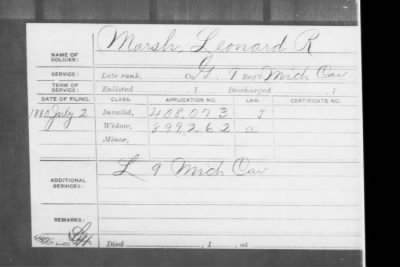 NAME OF SOLDIER: Marsh, Leonard R
SERVICE: Late rank, Co. G, 9 Reg't Mich Cav
TERM OF SERVICE: Enlisted , 1 Discharged , 1
DATE OF FILING. CLASS. APPLICATION NO. LAW. CERTIFICATE NO.
1880 July 2 Invalid, 408.073 J
Widow, 899.262 a
Minor,
ADDITIONAL SERVICES: L 9 Mich Cav
REMARKS:
Died , 1 , at